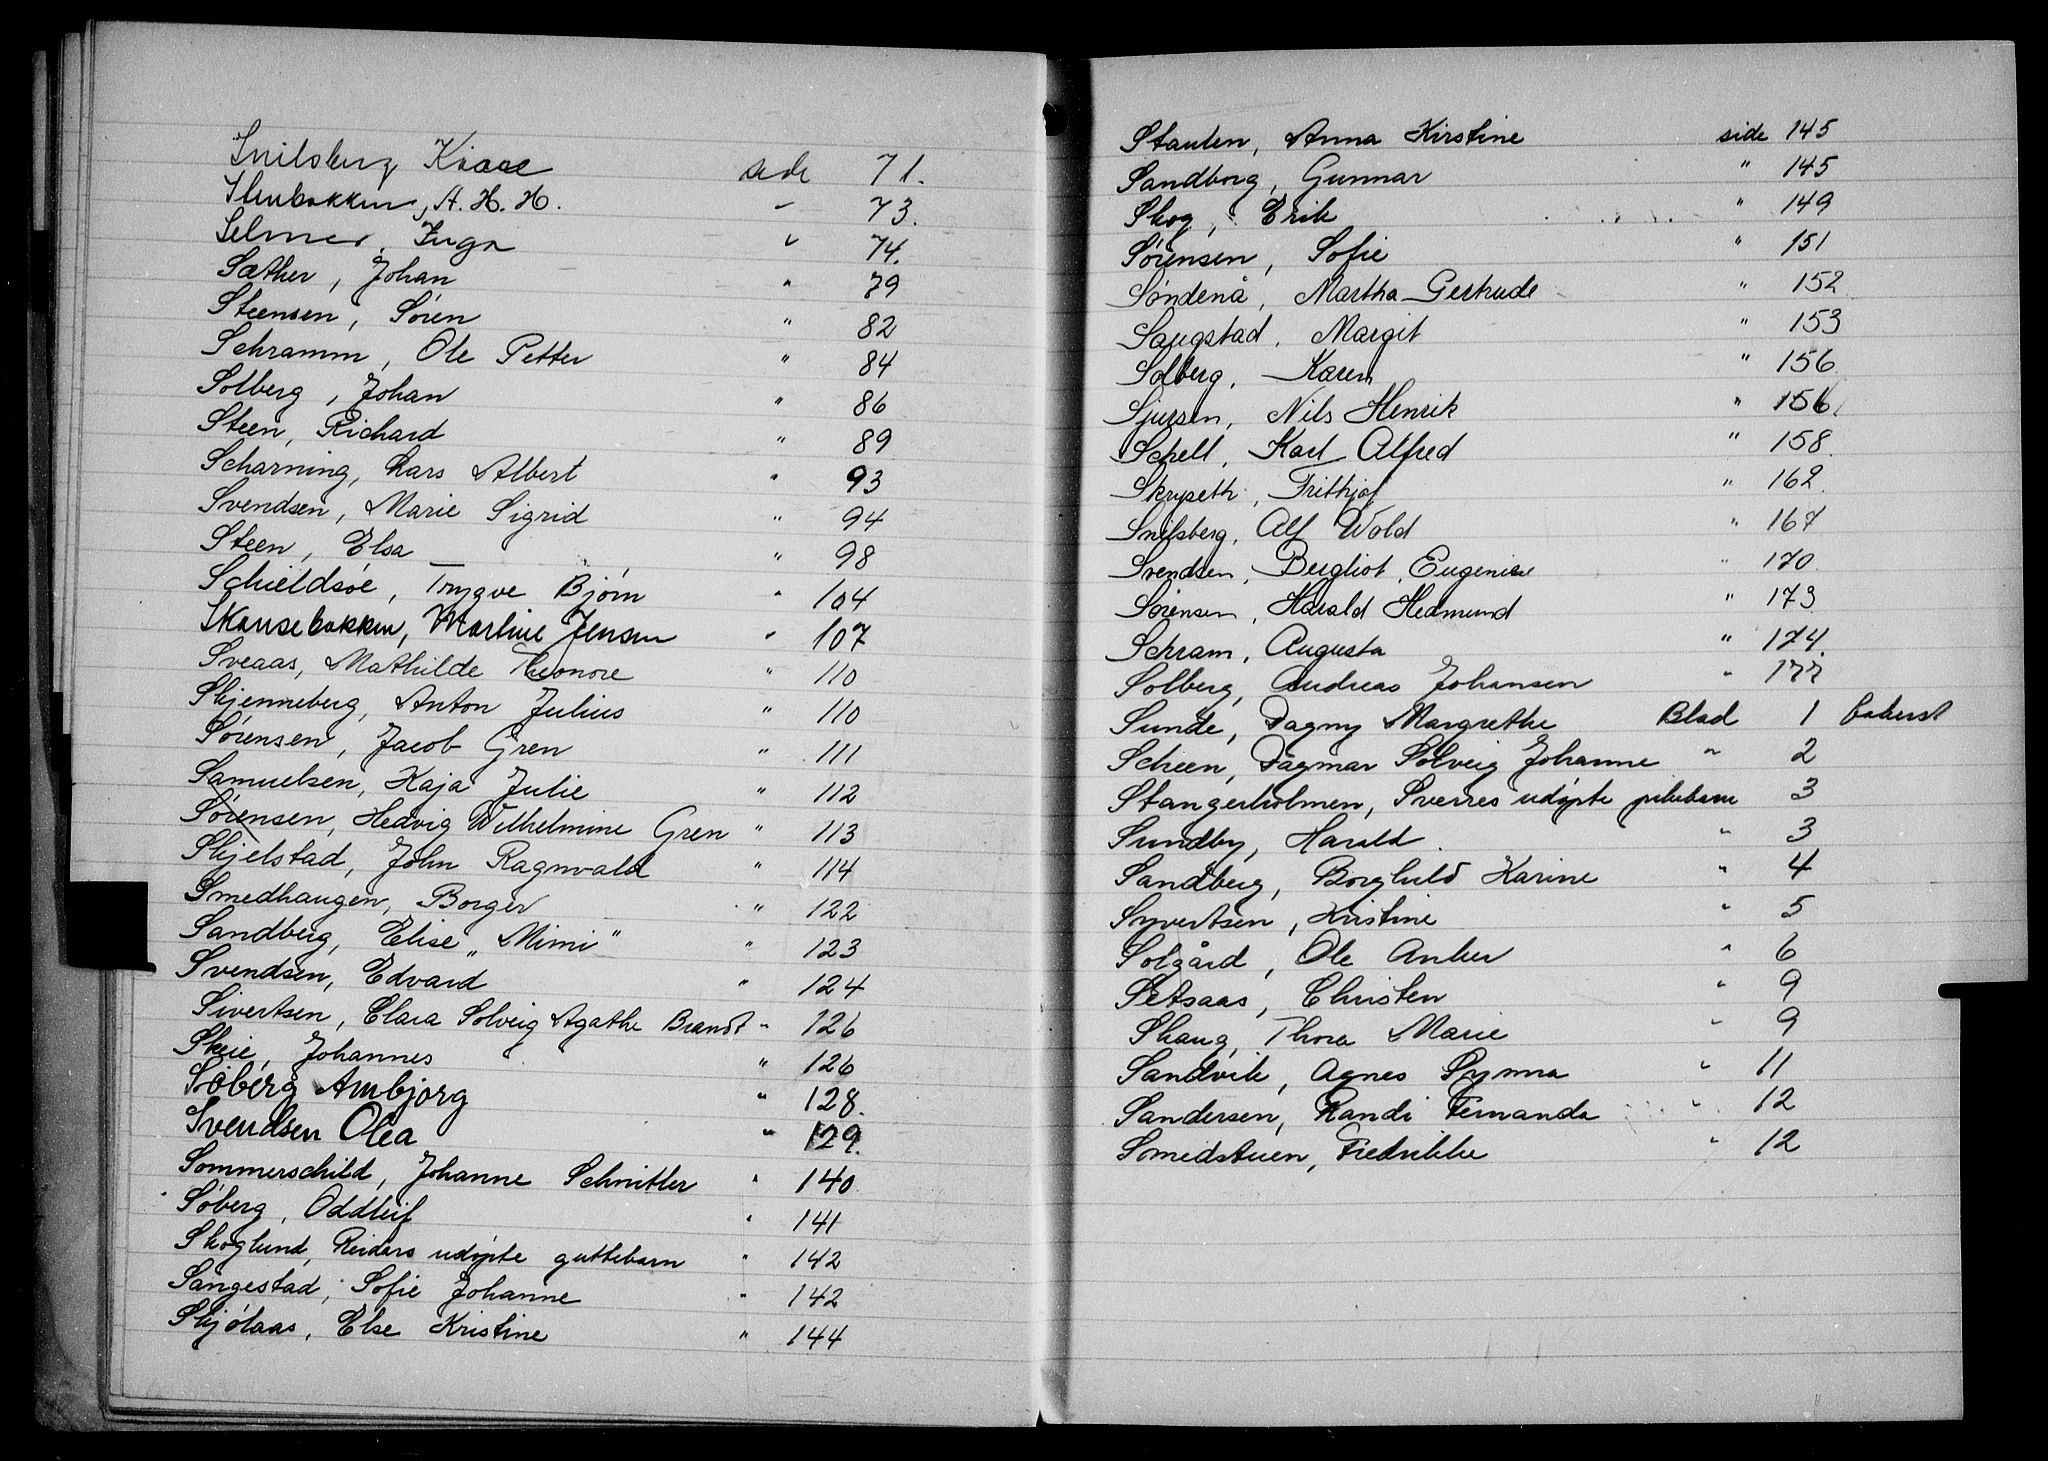 Snilsberg Kaare side 71.
Stenbakken, A. H. H. " 73.
Selmer, Inga " 74.
Sæther, Johan " 79
Steensen, Sören " 82
Schramm, Ole Petter " 84
Solberg, Johan " 86
Steen, Richard " 89
Scharning, Lars Albert " 93
Svendsen, Marie Sigrid " 94
Steen, Elsa " 98
Schieldsöe, Trygve Bjørn " 104
Skansebakken, Martine Jensen " 107
Sveaas, Mathilde Leonore " 110
Skjenneberg, Anton Julius " 110
Sørensen, Jacob Gren " 111
Samuelsen, Kaja Julie " 112
Sørensen, Hedvig Wilhelmine Gren " 113
Skjelstad, John Ragnvald " 114
Smedhaugen, Borger " 122
Sandberg, Elise „Mimi" " 123
Svendsen, Edvard " 124
Sivertsen, Clara Solveig Agathe Brandt " 126
Skeie, Johannes " 126
Söberg Arnbjørg " 128.
Svendsen Olea " 129.
Sommerschild, Johanne Schnitler " 140
Søberg, Oddleif " 141
Skoglund, Reidars udøpte guttebarn " 142
Sangestad, Sofie Johanne " 142
Skjølaas, Else Kristine " 144
Staulen, Anna Kirstine side 145
Sandborg, Gunnar " 145
Skog, Erik " 149
Sörensen, Sofie " 151
Söndenå, Martha Gertrude " 152
Saugstad, Margit " 153
Solberg, Karen " 156
Sjursen, Nils Henrik " 156
Schell, Karl Alfred " 158.
Skrypeth, Frithjof " 162
Snilsberg, Alf Wold " 167
Svendsen, Bergliot Eugenie " 170
Sörensen, Harald Hedmund " 173
Schram, Augusta " 174.
Solberg, Andreas Johansen " 177
Sunde, Dagny Margrethe Blad 1 bakerst
Scheen, Dagmar Solveig Johanne " 2
Stangerholmen, Sverres udøpte pikebarn 3
Sundby, Harald " 3
Sandberg, Borghild Karine " 4
Syvertsen, Kirstine " 5
Solgård, Ole Anker " 6
Setsaas, Christen " 9
Skaug, Thora Marie " 9
Sandvik, Agnes Synna " 11
Sandersen, Randi Fernanda " 12
Smedstuen, Fredrikke " 12